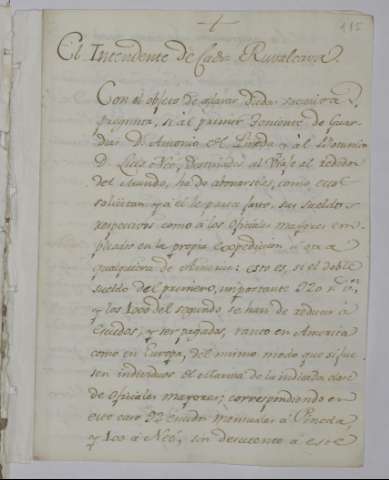 115
El Intendente de Cadiz Ruvalcava.
Con el objeto de aclarar dudas
pregunta, si al primer Teniente de Guar
dias D. Antonio de Pineda y al Botanico
D. Luis Neé, destinados al Viaje al rededor
del Mundo, ha de abonarseles, como ellos
solicitan y a él le parece justo, sus sueldos
respectivos como á los Oficiales mayores em
pleados en la propia expedicion ó otra
qualquiera de Marina: esto es, si el doble
sueldo del primero, importante 920 rs. vn.
y los 1000 del segundo, se han de reducir á
escudos, y ser pagados, tanto en America
como en Europa, del mismo modo que si fue
sen individuos de Marina de la indicada clase
de Oficiales mayores; correspondiendo en
este caso 92 escudos mensuales á Pineda,
y 100 á Neé, sin descuento á este